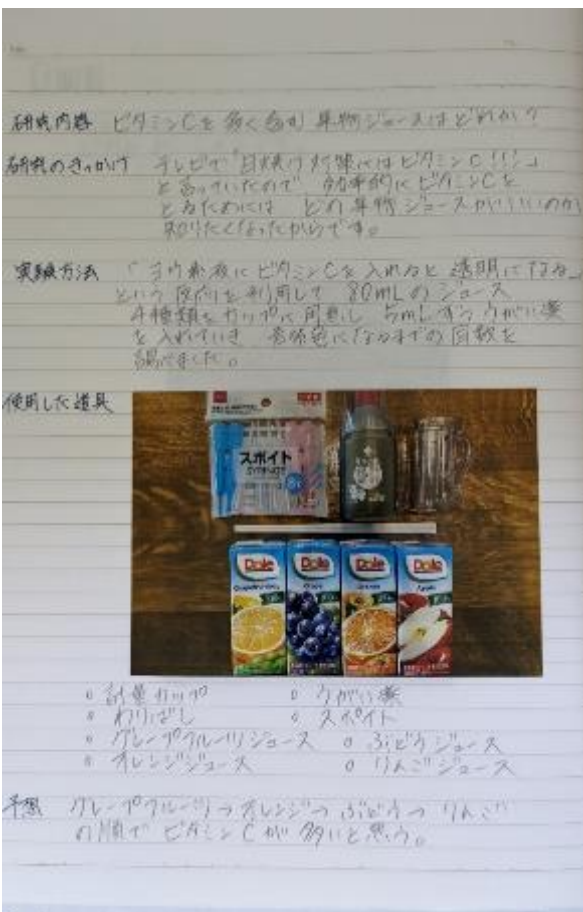 研究内容 ビタミンCを多く含む果物ジュースはどれか?
研究のきっかけ テレビで「日焼け対策にはビタミンC!!!」
と言っていたので 効率的にビタミンCを
とるためには どの果物ジュースがいいのか
知りたくなったからです。
実験方法 「ヨウ素液にビタミンCを入れると透明になる」
という反応を利用して 80mLのジュース
4種類をカップに用意し 5mLずつうがい薬
を入れていき 茶褐色になるまでの回数を
調べました。
使用した道具
スポイト
Dole Dole Dole Dole
Grapefruit Grape Orange Apple
◦ 計量カップ ◦ うがい薬
◦ わりばし ◦ スポイト
◦ グレープフルーツジュース ◦ ぶどうジュース
◦ オレンジジュース ◦ りんごジュース
予想 グレープフルーツ→オレンジ→ぶどう→りんご
の順でビタミンCが多いと思う。